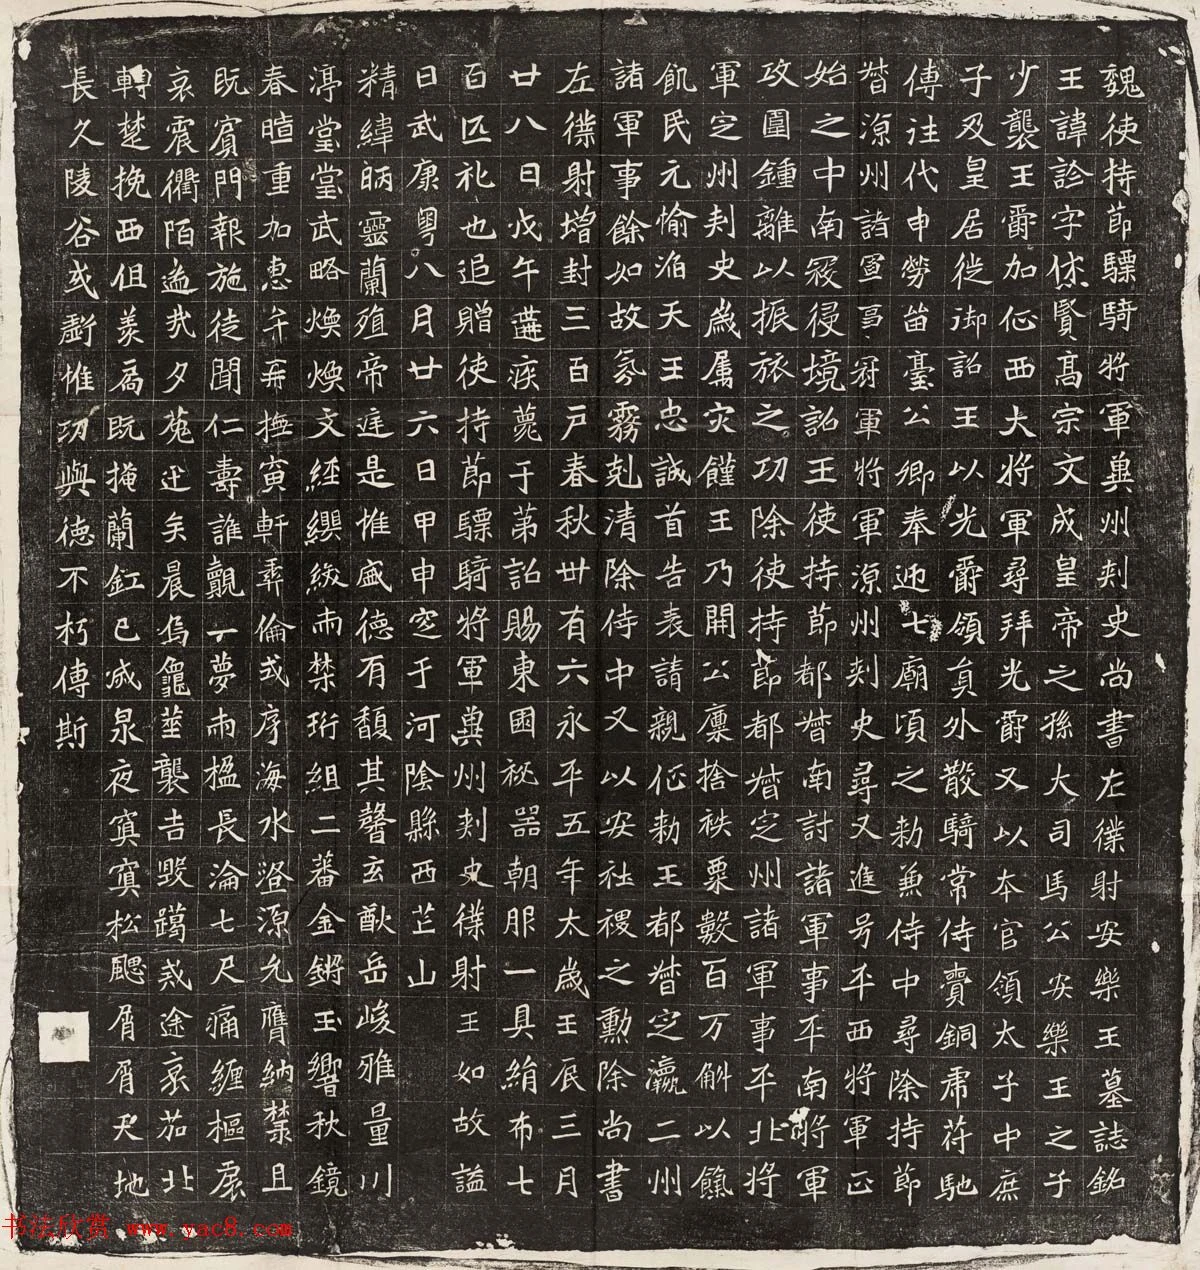 魏使持節驃騎將軍冀州刺史尚書左僕射安樂王墓誌銘
王諱詮字休賢高宗文成皇帝之孫大司馬公安樂王之子
少襲王爵加征西大將軍尋拜光爵又以本官領太子中庶
子及皇居徙御詔王以光爵領員外散騎常侍賫銅虎符馳
傳往代申勞留臺公卿奉迎七廟頃之勑兼侍中尋除持節
督涼州諸軍事冠軍將軍涼州刺史尋又進号平西將軍正
始之中南寇侵境詔王使持節都督南討諸軍事平南將軍
攻圍鍾離以振旅之功除使持節都督定州諸軍事平北將
軍定州刺史歲屬灾饉王乃開公廩捨秩粟數百万斛以餼
飢民元愉滔天王忠誠首告表請親征勑王都督定瀛二州
諸軍事餘如故氛霧剋清除侍中又以安社禝之勳除尚書
左僕射增封三百戶春秋卅有六永平五年太歲壬辰三月
廿八日戊午遘疾薨于第詔賜東園祕器朝服一具絹布七
百匹礼也追贈使持節驃騎將軍冀州刺史僕射王如故謚
曰武康粵八月廿六日甲申窆于河陰縣西芒山
精緯昞靈蘭殖帝庭是惟盛德有馥其馨玄猷岳峻雅量川
渟堂堂武略煥煥文經纓緌兩禁珩組二蕃金鏘玉響秋鏡
春暄重加惠弁再撫寅軒彝倫或序海水澄源允膺納禁且
既賓門報施徒聞仁壽誰覯一夢兩楹長淪七尺痛纏樞扆
哀震衢陌遙哉夕菟迅矣晨烏龜筮襲吉毀躅戒途哀茄北
轉楚挽西徂美扃既掩蘭釭已滅泉夜寘寘松飂屑屑天地
長久陵谷或虧惟功與德不朽傳斯
书法欣赏 www.yac8.com